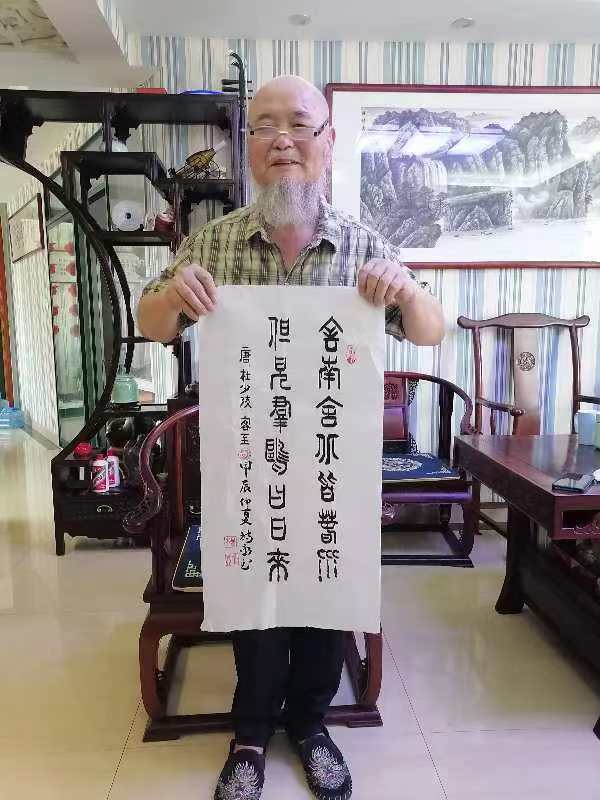 舍南舍北皆春水
但見羣鷗日日來
唐杜少陵客至甲辰仲夏